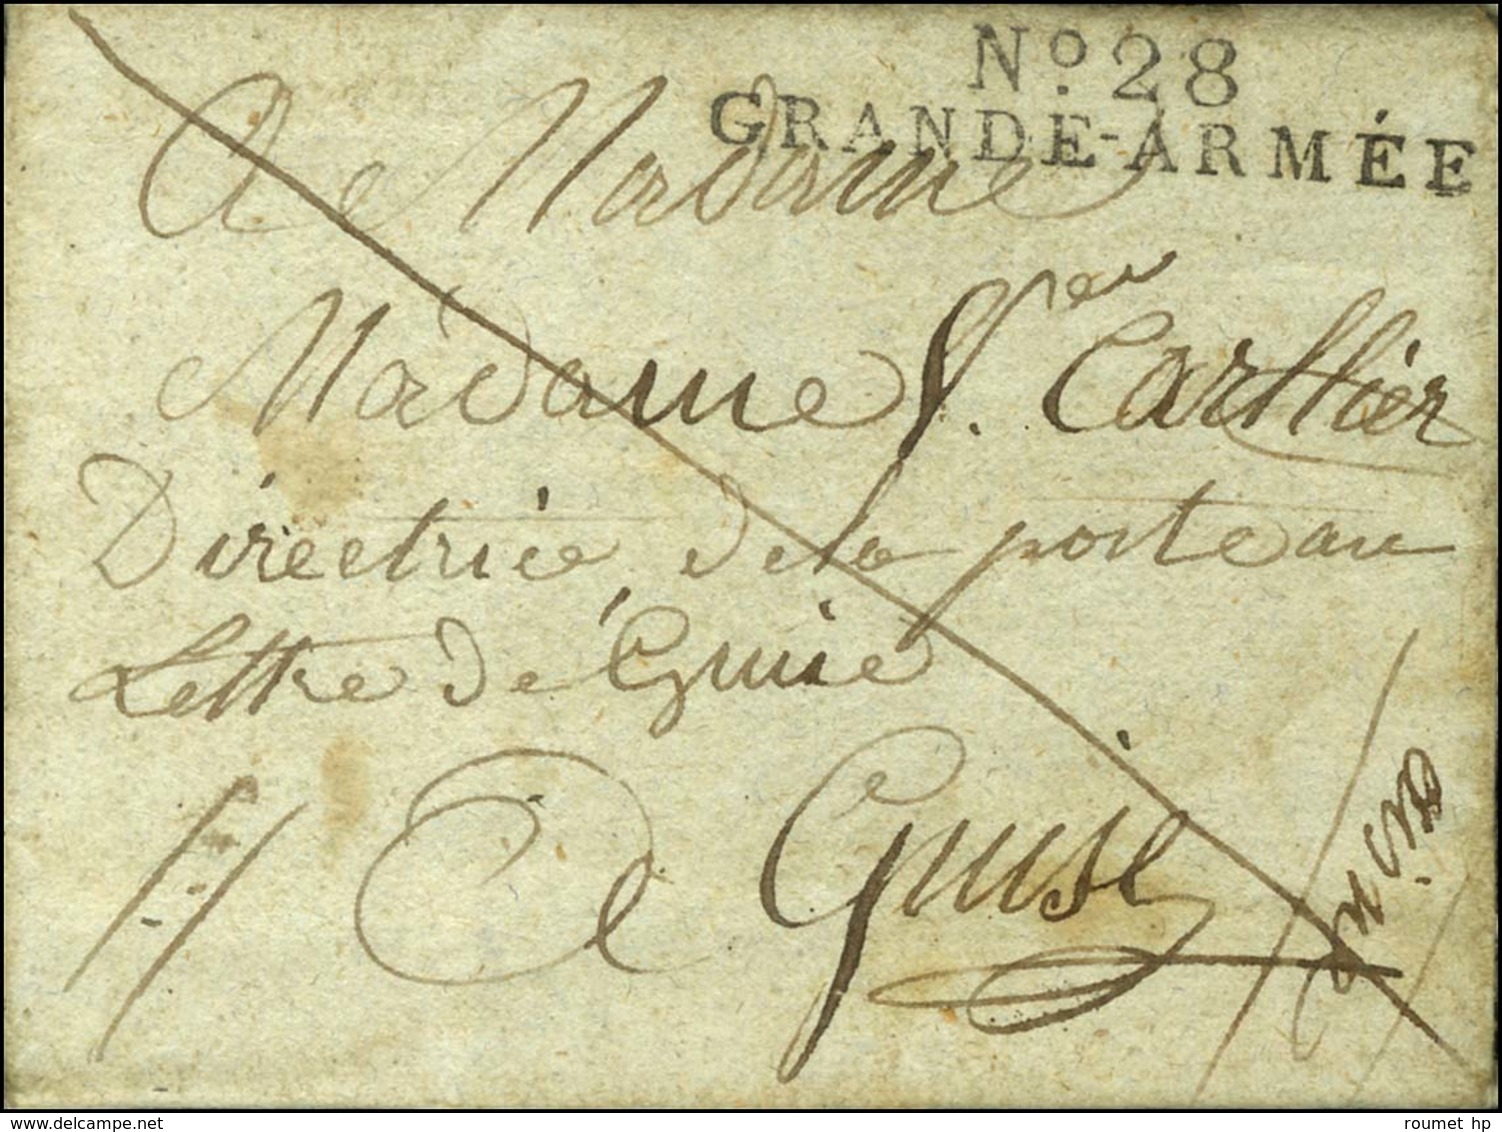 No. 28
GRANDE-ARMÉE
A Madame
Madame Cartier
Directrice de la poste au
Lettre de Guise
A Guise
roumet hp